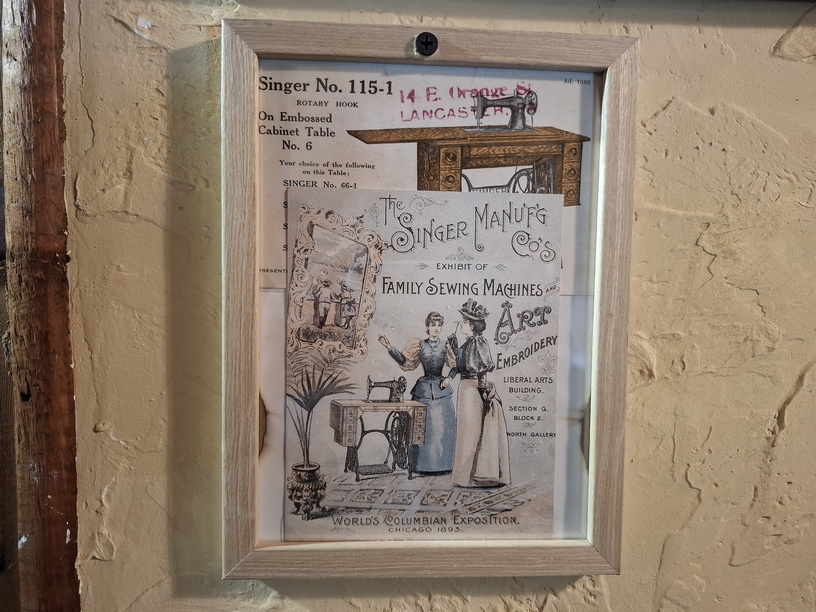 Singer No. 115-1
ROTARY HOOK
On Embossed
Cabinet Table
No. 6
Your choice of the following
on this Table:
SINGER No. 66-1
14 E. Orange St
LANCASTER,
SINGER
THE
SINGER MANU'F'G
CO'S
EXHIBIT OF
FAMILY SEWING MACHINES AND
ART
EMBROIDERY
LIBERAL ARTS
BUILDING.
SECTION G.
BLOCK 2.
NORTH GALLERY
WORLD'S COLUMBIAN EXPOSITION.
CHICAGO 1893.